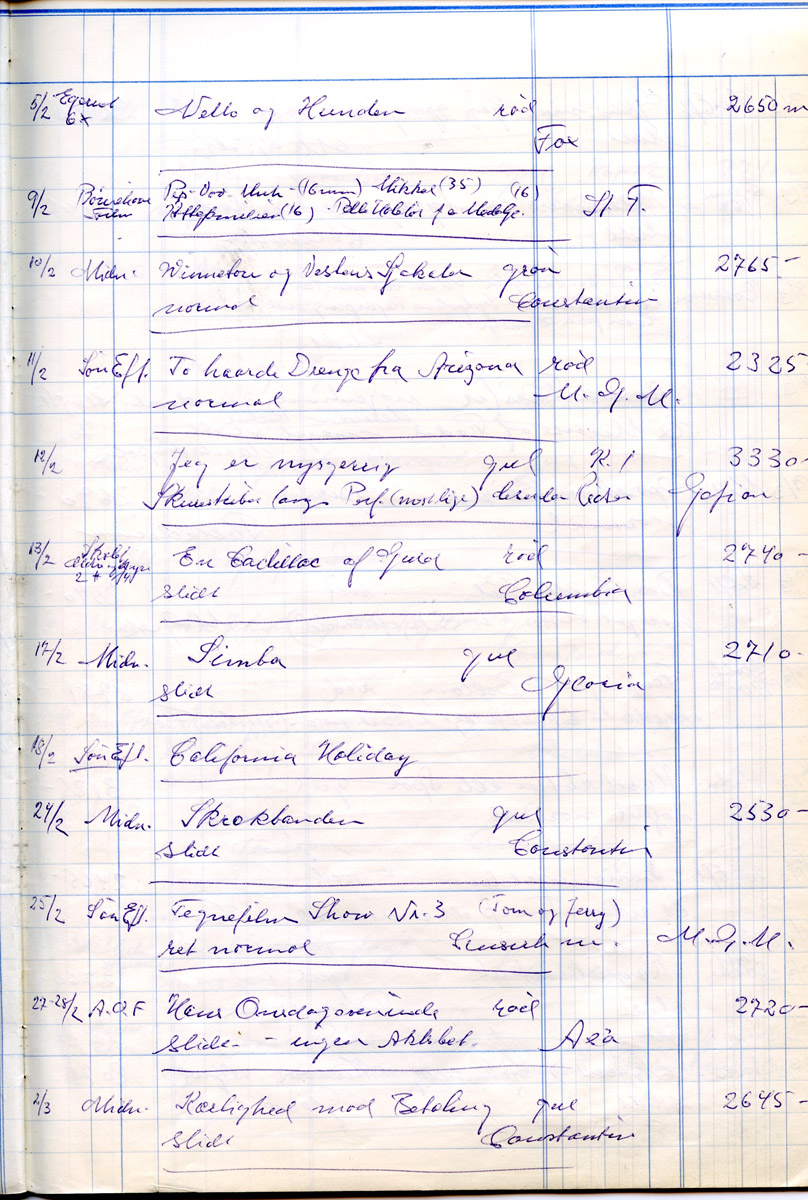 5/2 Nello og Hunden rød 2650 m
6x
Fox
9/2 (16mm) Mikkel (35) (16)
Film (16) Pelle
10/2 Midn. Winnetou og Vestens Sjakaler grøn 2765-
normal Constantin
11/2 SønEft. To haarde Drenge fra Arizona rød 2325-
normal M.G.M.
12/2 Jeg er nysgerrig gul K.1 3330-
langs Perf. Gafion
13/2 En Cadillac af Guld rød 2740-
slidt Columbia
17/2 Midn. Simba gul 2710-
slidt Gloria
18/2 SønEft. California Holiday
24/2 Midn. Skrokbanden gul 2530-
slidt Constantin
25/2 SønEft. Tegnefilm Show Nr. 3 (Tom og Jerry)
ret normal M.G.M.
27-28/2 A.O.F Hans Onsdagsveninde rød 2720-
slidt - ingen Aktbet. Asa
2/3 Midn. Kærlighed mod Betaling gul 2645-
slidt Constantin